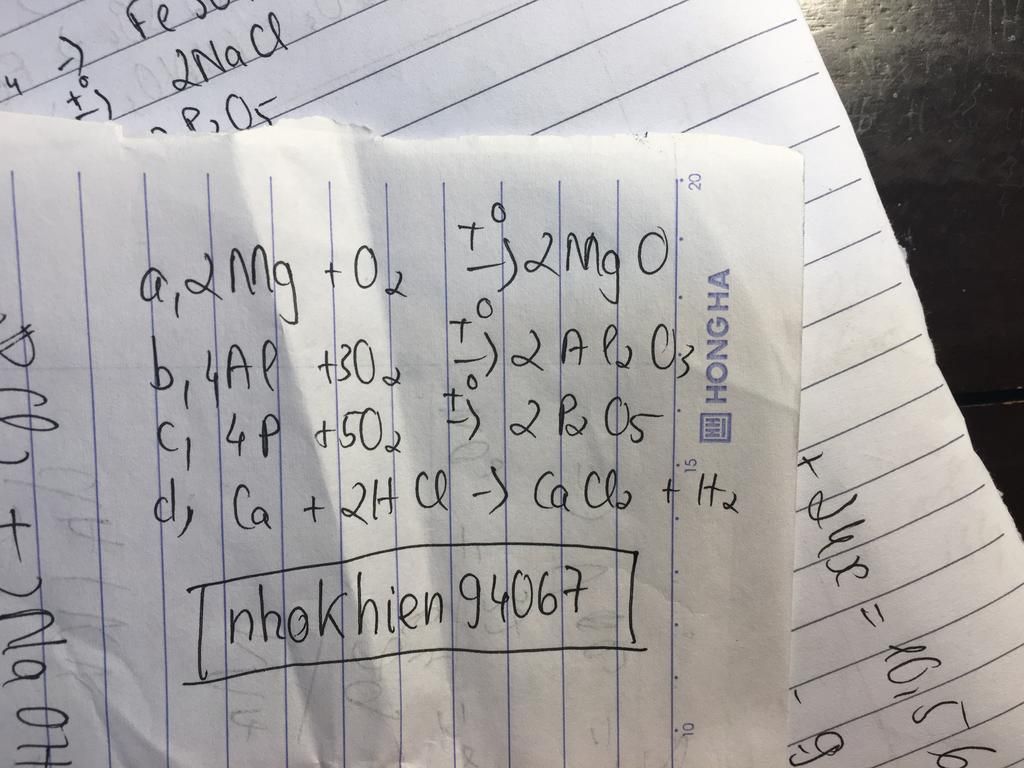 → Fe
2NaCl
P2O5
a, 2Mg + O2 t⁰→ 2MgO
b, 4Al + 3O2 t⁰→ 2Al2O3
c, 4P + 5O2 t⁰→ 2P2O5
d, Ca + 2HCl → CaCl2 + H2
nhokhien94067
20
HONG HA
15
10